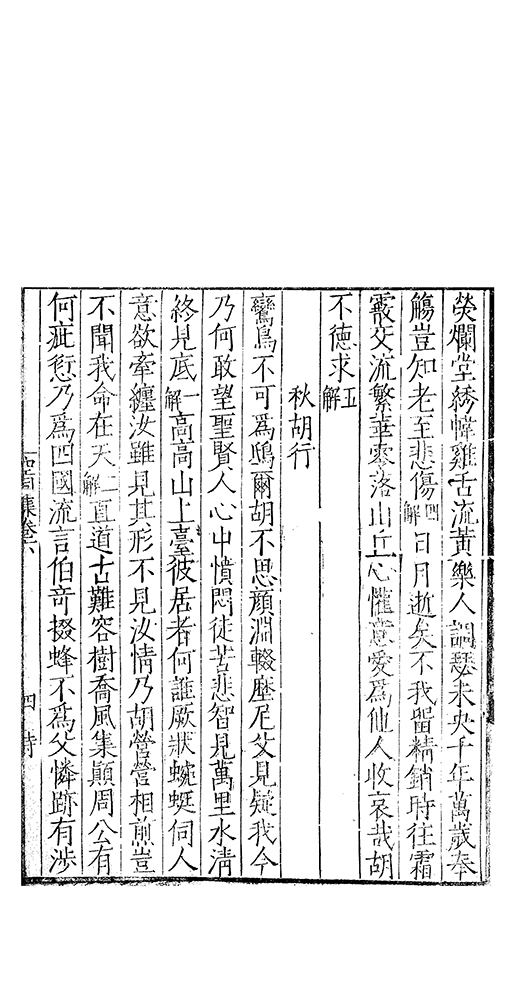 熒爛堂綉幃雞舌流黃樂人調瑟未央千年萬歲奉
觴豈知老至悲傷四解日月逝矣不我留精銷時往霜
霰交流繁華零落山丘心懽意愛爲他人收哀哉胡
不德求五解
秋胡行
鸞鳥不可爲鴟爾胡不思顔淵輟塵尼父見疑我今
乃何敢望聖賢人心中憤悶徒苦悲智見萬里水清
終見底一解高高山上臺彼居者何誰厥狀蜿蜒伺人
意欲牽纏汝雖見其形不見汝情乃胡營營相煎豈
不聞我命在天二解直道古難容樹喬風集顚周公有
何疵愆乃爲四國流言伯奇掇蜂不爲父憐跡有涉
集卷六
四
詩